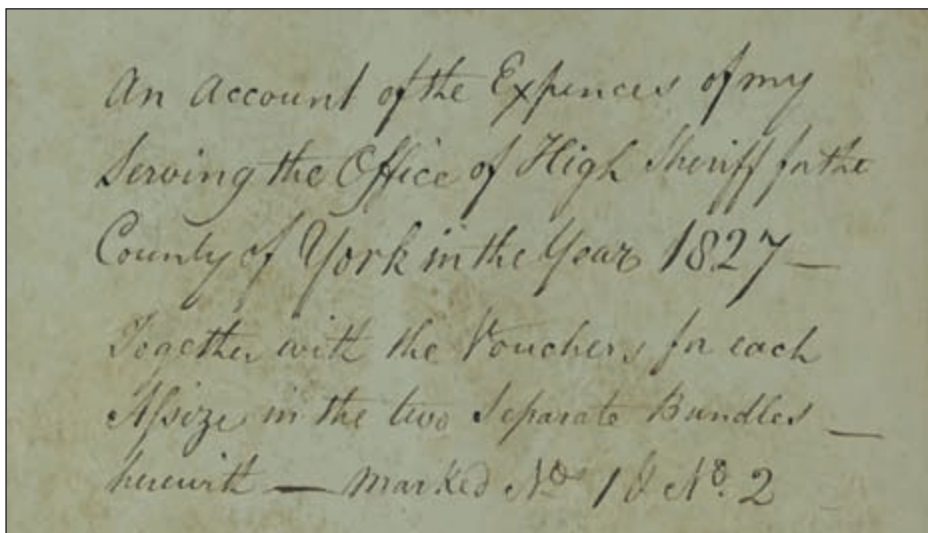 An Account of the Expences of my
Serving the Office of High Sheriff for the
County of York in the Year 1827 —
Together with the Vouchers for each
Assize in the two Separate Bundles —
herewith — marked No. 1 & No. 2